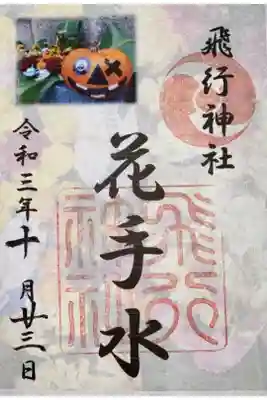 飛行神社
花手水
令和三年十月廿三日
飛行
神社